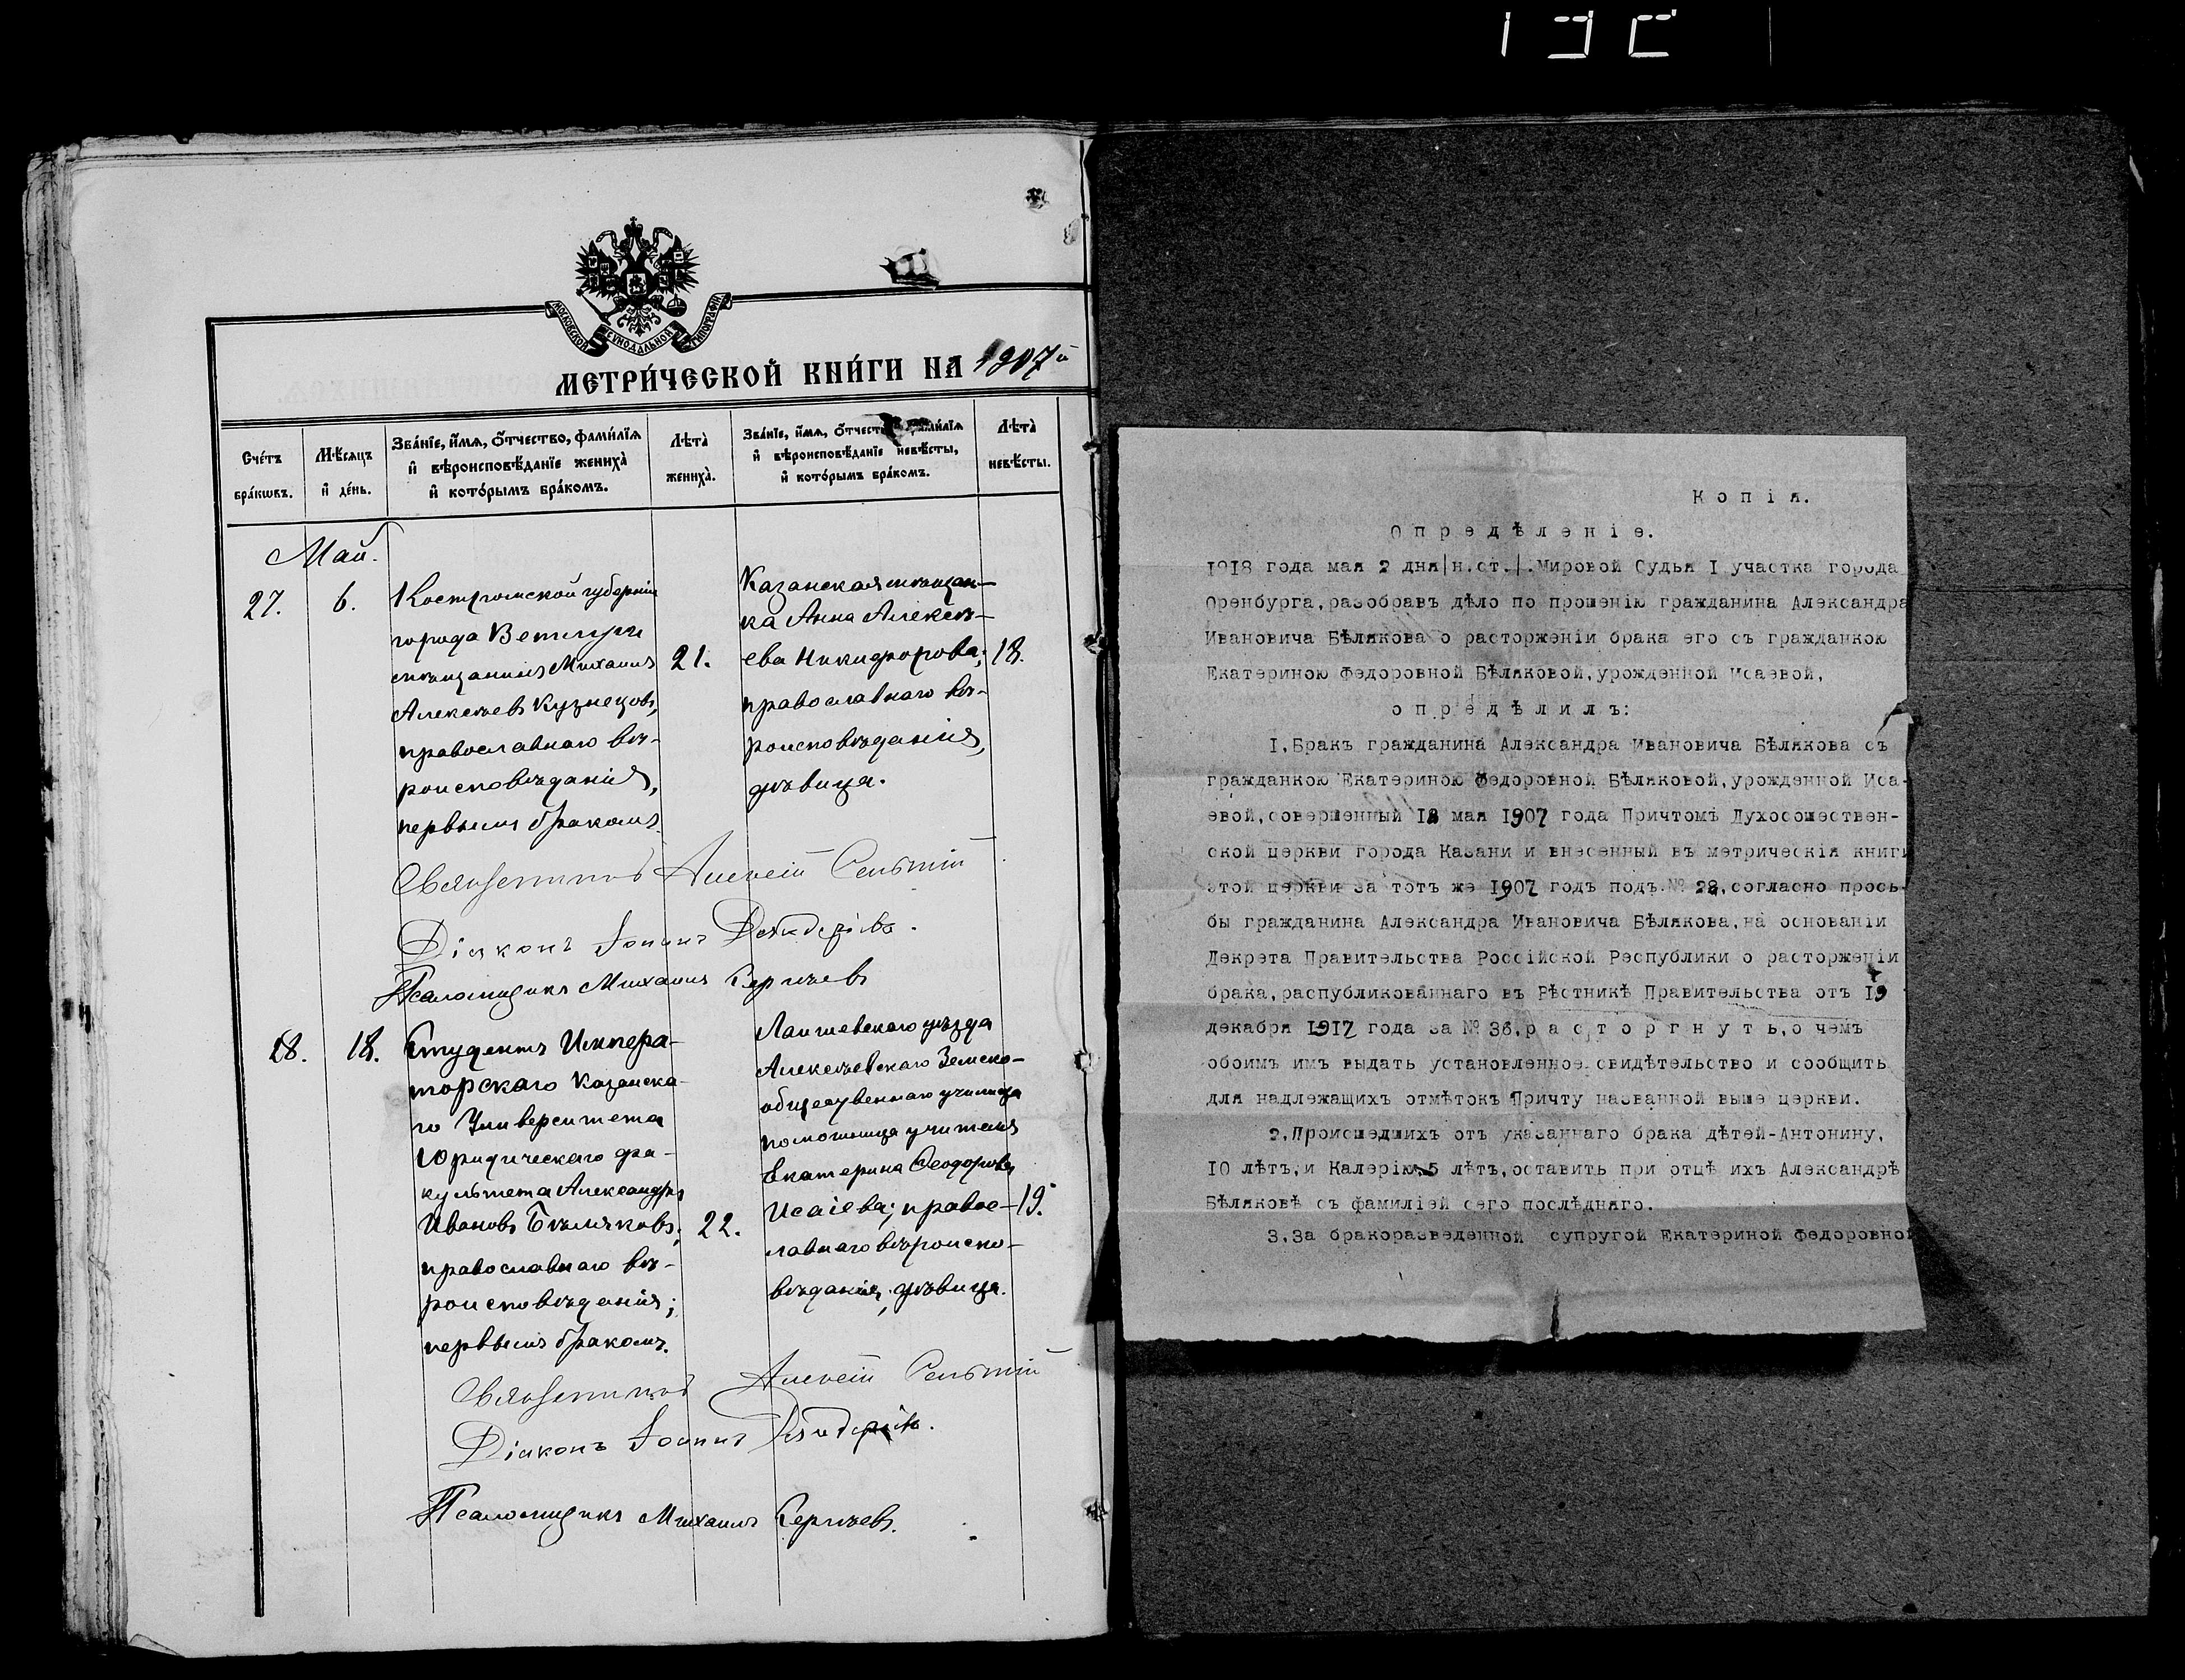 МОСКОВСКОЙ СУНОДАЛЬНОЙ ТИПОГРАФІИ
МЕТРИ́ЧЕСКОЙ КНИ́ГИ НА 1907й
Сче́тъ бра́кωвъ.
Мѣ́сяцъ и҆ де́нь.
Зва́нїе, и҆́мя, ѻ҆́тчество, фами́лїя и҆ вѣроисповѣ́данїе жениха̀ и҆ кото́рымъ бра́комъ.
Лѣта̀ жениха̀.
Зва́нїе, и҆́мя, ѻ҆́тчество, фами́лїя и҆ вѣроисповѣ́данїе невѣ́сты, и҆ кото́рымъ бра́комъ.
Лѣта̀ невѣ́сты.
Май.
27.
6.
Костромской губерніи
города Ветлуги
мѣщанинъ Михаилъ
Алексѣевъ Кузнецовъ,
православнаго вѣ-
роисповѣданія,
первымъ бракомъ.
21.
Казанская мѣщан-
ка Анна Алексѣ-
ева Никифорова;
православнаго вѣ-
роисповѣданія,
дѣвица.
18.
Священникъ Алексій
Діаконъ Іоаннъ
Псаломщикъ Михаилъ Сергѣевъ
28.
18.
Студентъ Импера-
торскаго Казанска-
го Университета
юридическаго фа-
культета Александръ
Ивановъ Бѣляковъ;
православнаго вѣ-
роисповѣданія;
первымъ бракомъ.
22.
Лаишевскаго уѣзда
Алексѣевскаго Земско-
общественнаго училища
помощница учителя
Екатерина Ѳеодорова
Исаіева; правос-
лавнаго вѣроиспо-
вѣданія, дѣвица.
19.
Священникъ Алексій
Діаконъ Іоаннъ
Псаломщикъ Михаилъ Сергѣевъ.
Копія.
Опредѣленіе.
1918 года мая 2 дня/н.ст./.Мировой Судья I участка города
Оренбурга,разобравъ дѣло по прошенію гражданина Александра
Ивановича Бѣлякова о расторженіи брака его съ гражданкою
Екатериною Федоровной Бѣляковой,урожденной Исаевой,
опредѣлилъ:
I.Бракъ гражданина Александра Ивановича Бѣлякова съ
гражданкою Екатериною Федоровной Бѣляковой,урожденной Иса-
евой,совершенный 18 мая 1907 года Причтомъ Духосошествен-
ской церкви города Казани и внесенный въ метрическія книги
этой церкви за тотъ же 1907 годъ подъ № 28,согласно прось-
бы гражданина Александра Ивановича Бѣлякова,на основаніи
Декрета Правительства Россійской Республики о расторженіи
брака,распубликованнаго въ Вѣстникѣ Правительства отъ 19
декабря 1917 года за № 36,расторгнуть,о чемъ
обоимъ имъ выдать установленное свидѣтельство и сообщить
для надлежащихъ отмѣтокъ Причту названной выше церкви.
2.Происшедшихъ отъ указаннаго брака дѣтей-Антонину,
IO лѣтъ,и Калерію,5 лѣтъ,оставить при отцѣ ихъ Александрѣ
Бѣляковѣ съ фамиліей сего послѣдняго.
3.За бракоразведенной супругой Екатериной Федоровной